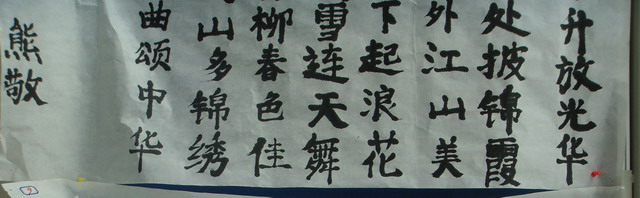 升放光华
处披锦霞
外江山美
下起浪花
雪连天舞
柳春色佳
山多锦绣
曲颂中华
熊敬